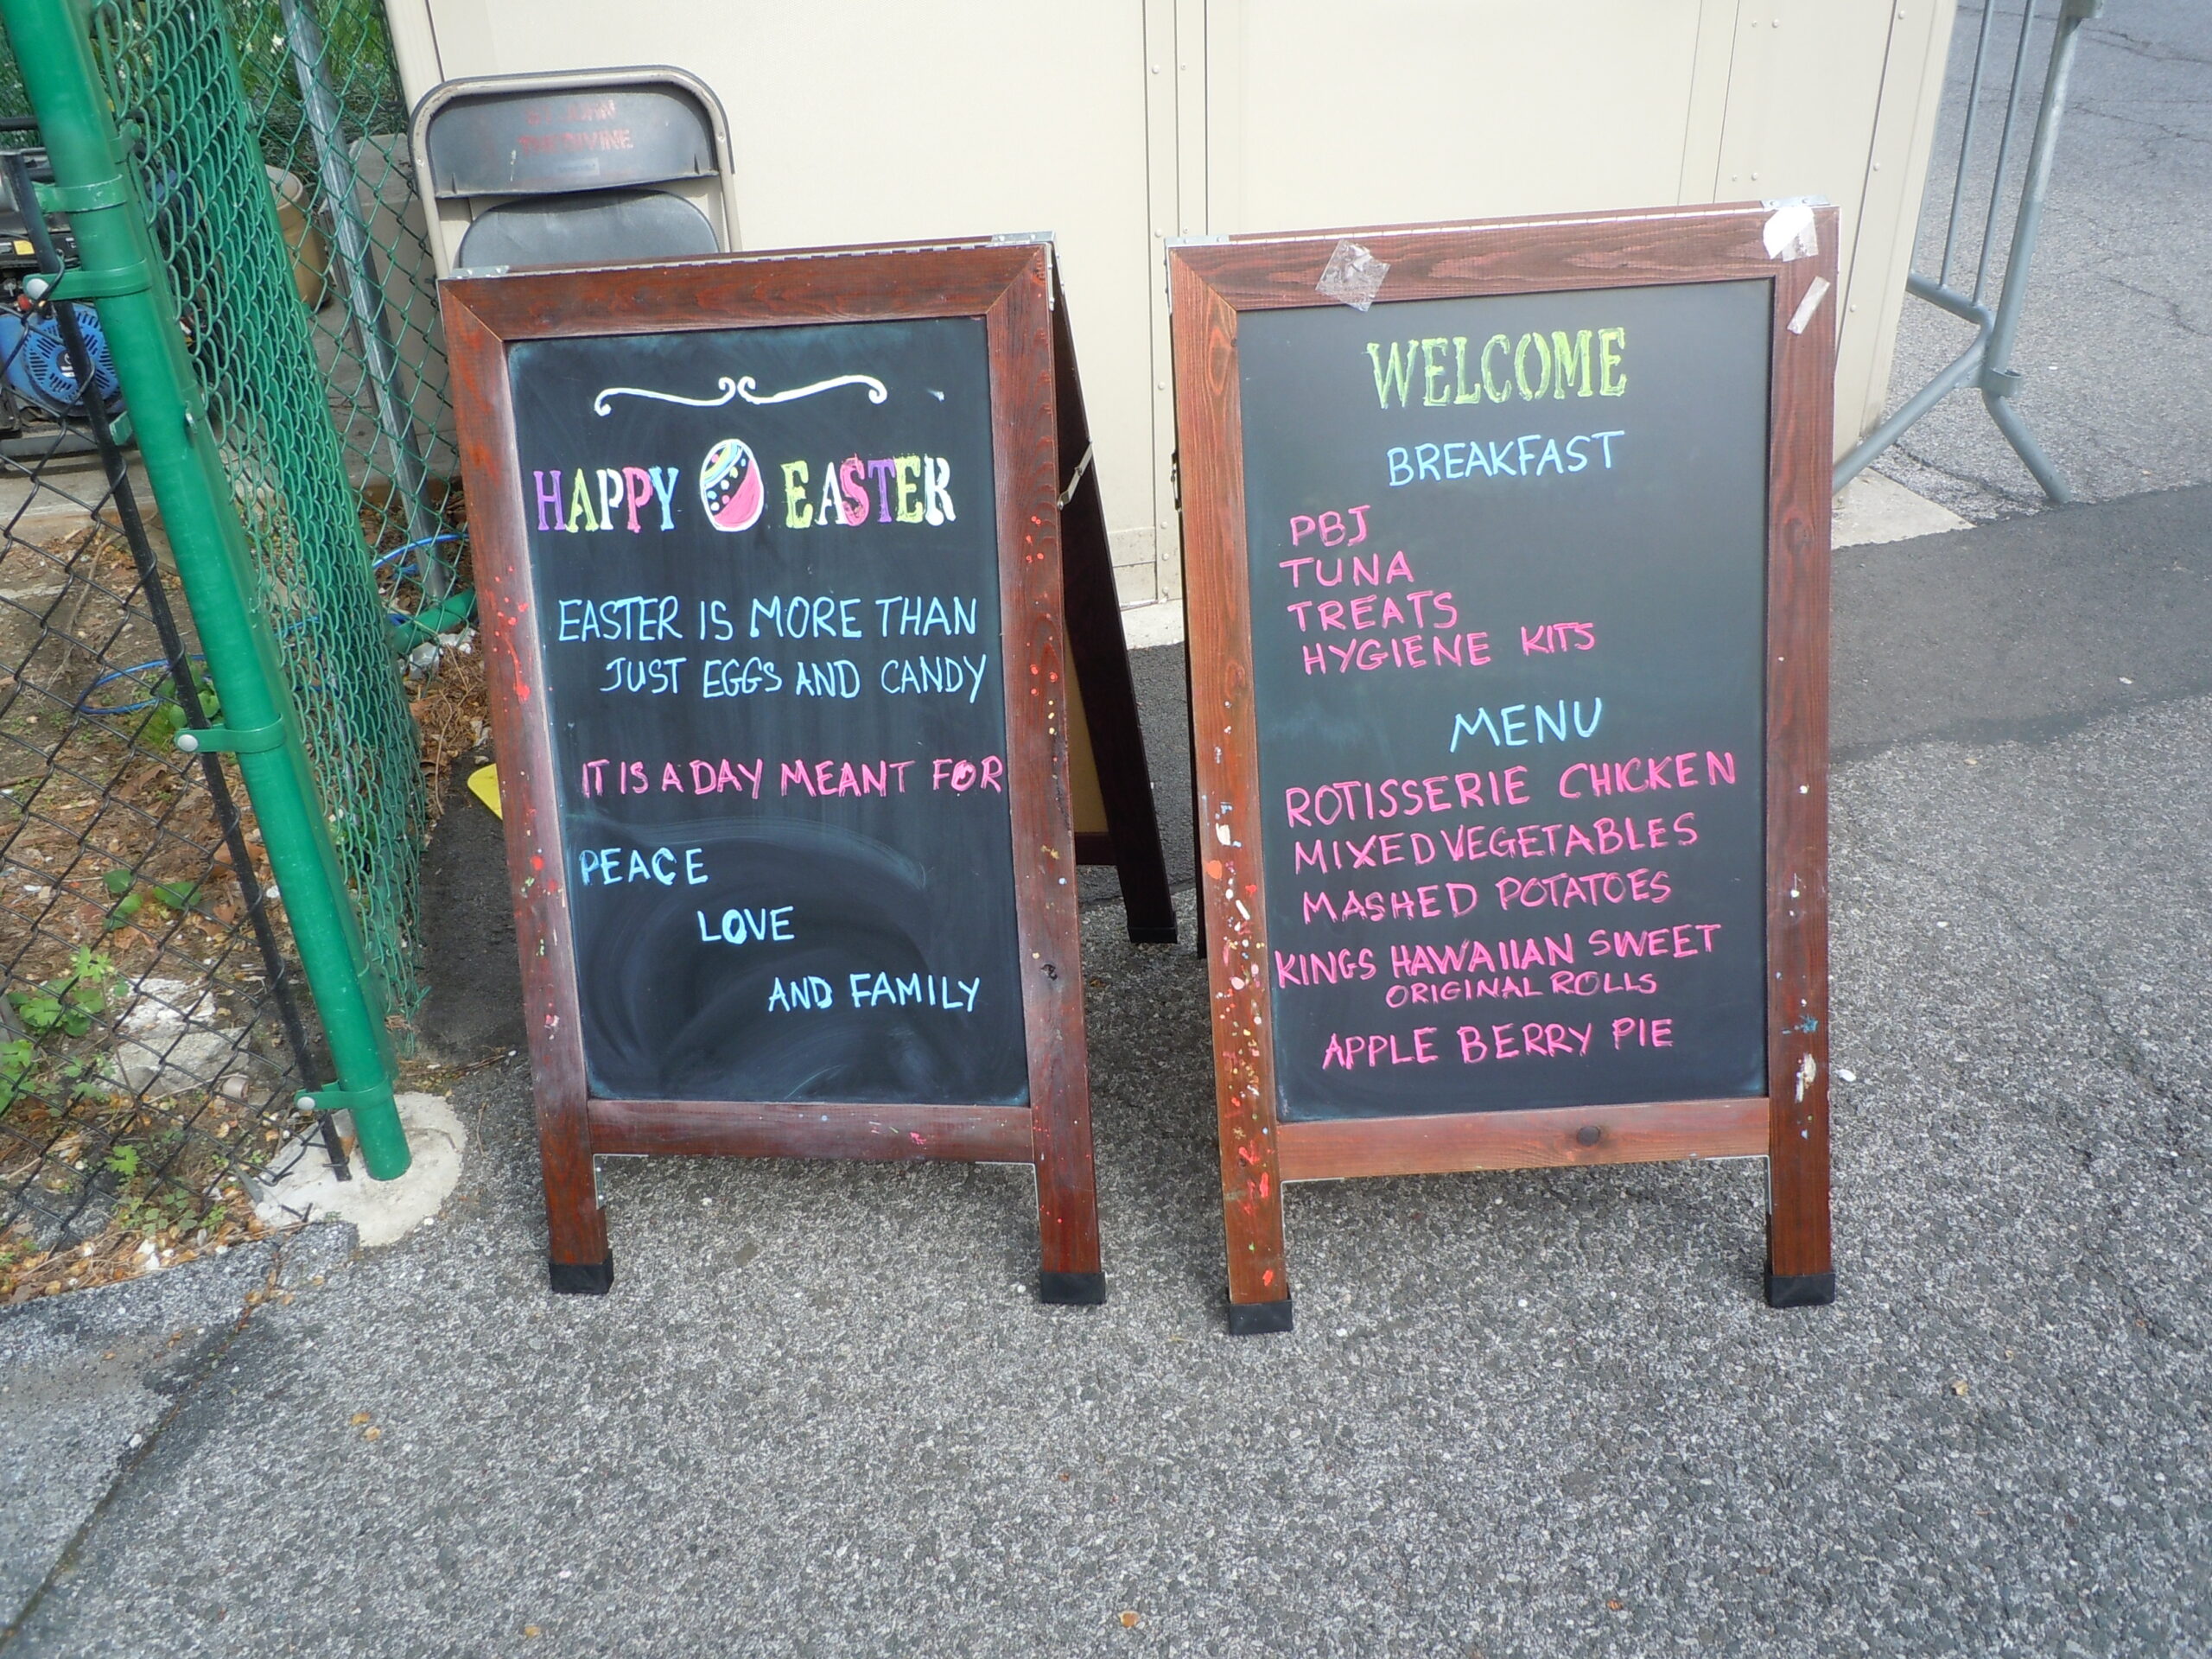 ST. JOHN
THE DIVINE
HAPPY EASTER
EASTER IS MORE THAN
JUST EGGS AND CANDY
IT IS A DAY MEANT FOR
PEACE
LOVE
AND FAMILY
WELCOME
BREAKFAST
PBJ
TUNA
TREATS
HYGIENE KITS
MENU
ROTISSERIE CHICKEN
MIXED VEGETABLES
MASHED POTATOES
KINGS HAWAIIAN SWEET
ORIGINAL ROLLS
APPLE BERRY PIE